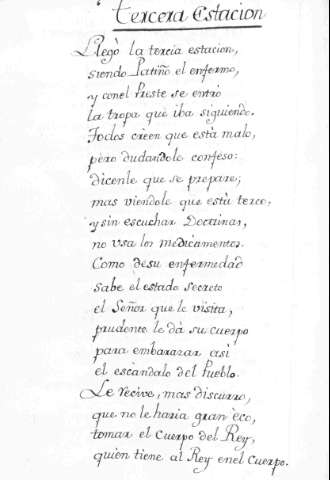 tercera Estacion
Llegò la tercia estacion,
siendo Patiño el enfermo,
y conel Preste se entrò
la tropa que iba siguiendo.
Todos creen que està malo,
pero dudandole confeso:
dicenle que se prepare;
mas viendole que està terco,
y sin escuchar Doctrinas,
no vsa los medicamentos.
Como desu enfermedad
sabe el estado secreto
el Señor que le visita,
prudente le dà su cuerpo
para embarazar asi
el escandalo del Pueblo.
Le recive, mas discurro,
que no le haria gran èco,
tomar el Cuerpo del Rey,
quien tiene al Rey enel Cuerpo.